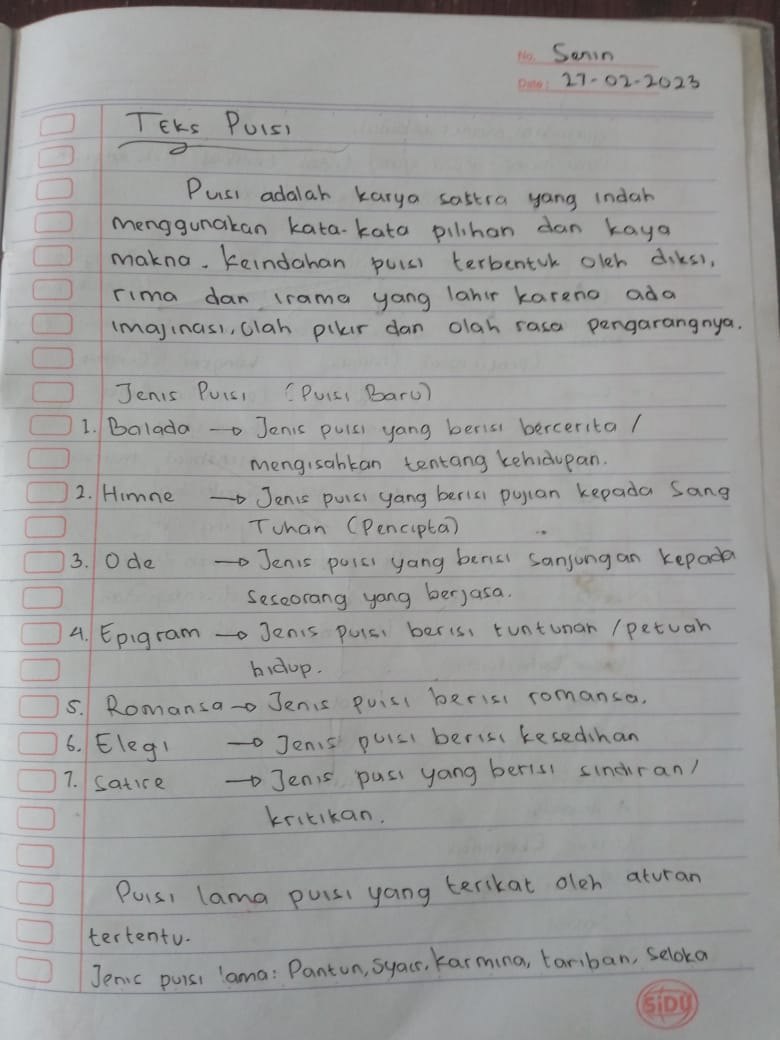 No. Senin
Date: 27-02-2023
Teks Puisi
Puisi adalah karya sastra yang indah
menggunakan kata-kata pilihan dan kaya
makna. Keindahan puisi terbentuk oleh diksi,
rima dan irama yang lahir karena ada
imajinasi, olah pikir dan olah rasa pengarangnya.
Jenis Puisi (Puisi Baru)
1. Balada → Jenis puisi yang berisi bercerita /
mengisahkan tentang kehidupan.
2. Himne → Jenis puisi yang berisi pujian kepada Sang
Tuhan (Pencipta)
3. Ode → Jenis puisi yang berisi sanjungan kepada
seseorang yang berjasa.
4. Epigram → Jenis puisi berisi tuntunan / petuah
hidup.
5. Romansa → Jenis puisi berisi romansa.
6. Elegi → Jenis puisi berisi kesedihan
7. Satire → Jenis pusi yang berisi sindiran /
kritikan.
Puisi lama puisi yang terikat oleh aturan
tertentu.
Jenis puisi lama: Pantun, Syair, Karmina, tariban, Seloka
SiDU